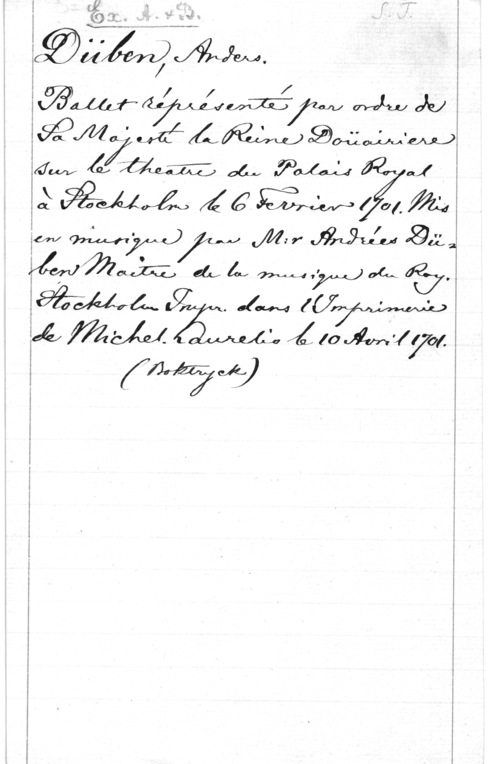 Ex. A. + B. S. J.
Düben, Anders.
Ballet réprésenté par ordre de
Sa Majesté la Reine Doüairiere
sur le theatre du Palais Royal
à Stockholm le 6 Fevrier 1701. Mis
en musique par M:r Andrées Dü=
ben Maitre de la musique du Roy.
Stockholm Impr. dans l'Imprimerie
de Michel. Laurelio le 10 Avril 1701.
(Boktryck)